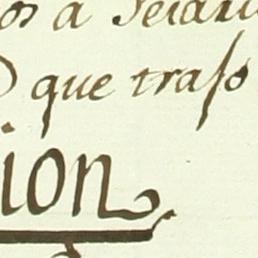 os a Seian
que traſo
ion